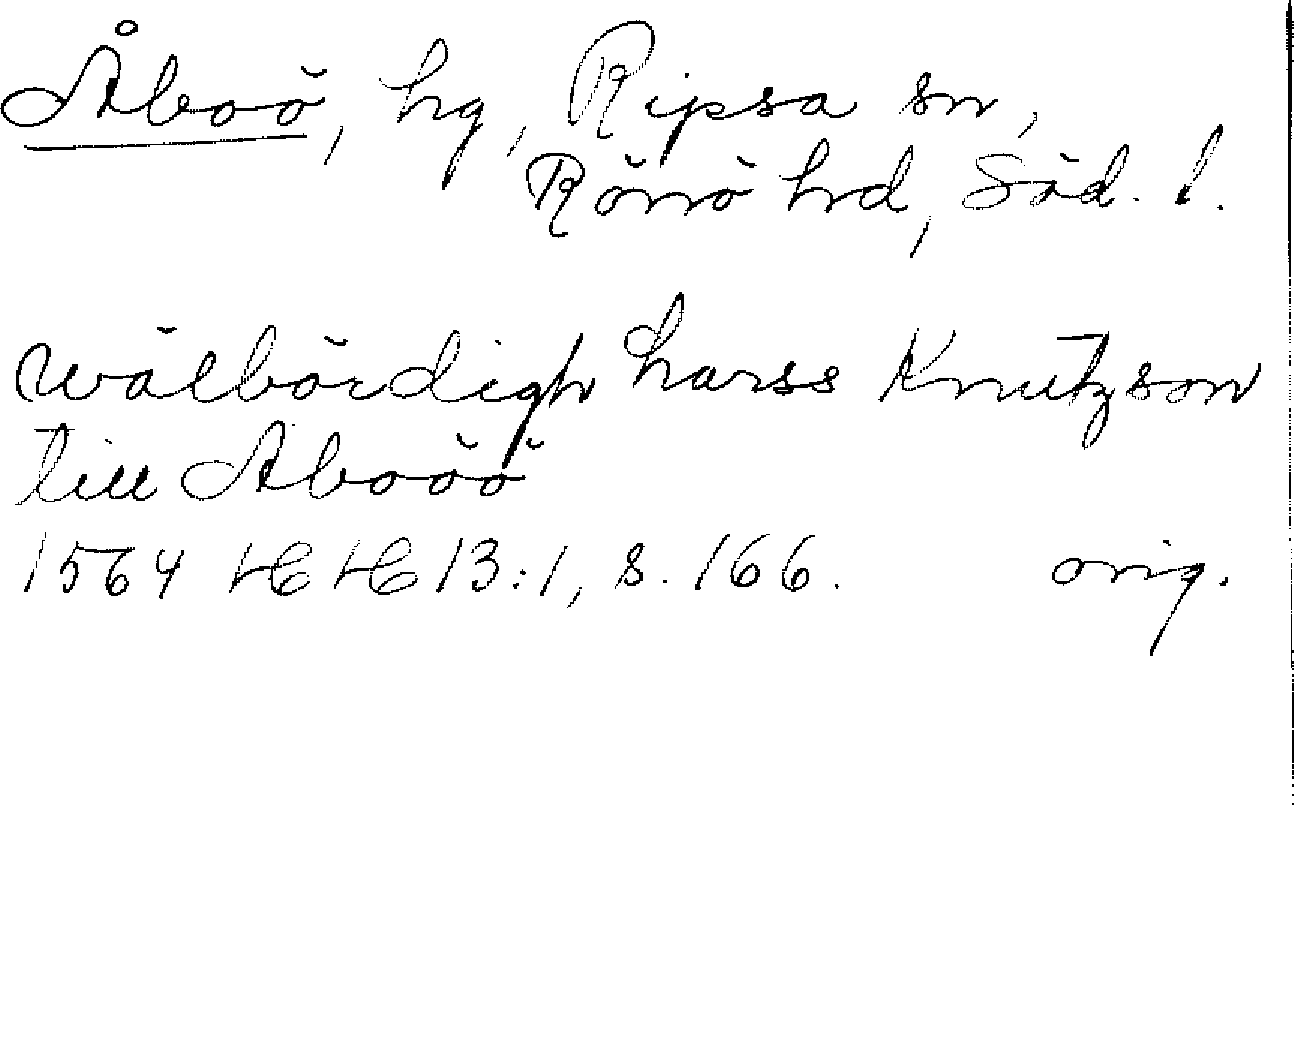 Åboö, hg, Ripsa sn,
Rönö hrd, Söd. l.
wälbördigh harss Knutzson
till Aboöö
1564 HH 13:1, s. 166. orig.